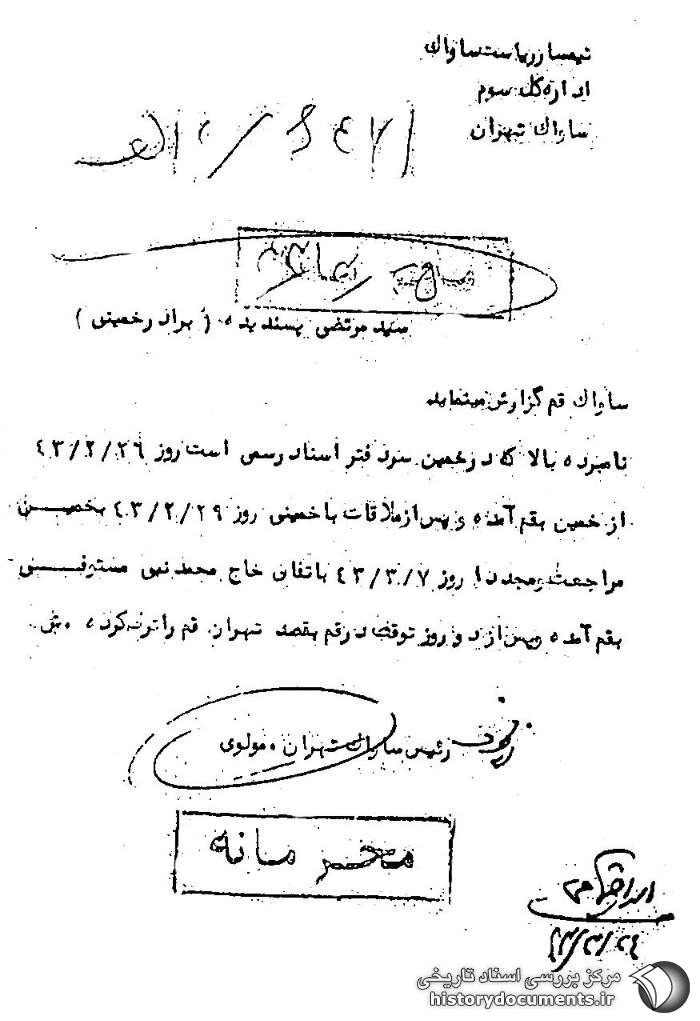 تیمسار ریاست ساواك
اداره کل سوم
ساواك تهران
سید مرتضی پسندیده (برادر خمینی)
ساواك قم گزارش مینماید
نامبرده بالا که در خمین سردفتر اسناد رسمی است روز ۴۳/۲/۲۶
از خمین بقم آمده و پس از ملاقات با خمینی روز ۴۳/۲/۲۹ بخمین
مراجعت و مجددا روز ۴۳/۳/۷ باتفاق حاج محمد نبی مستوفی
بقم آمده و پس از دو روز توقف در قم بقصد تهران قم را ترك کرده
رئیس ساواك تهران. مولوی
محرمانه
۴۳/۳/۲۴
مرکز بررسی اسناد تاریخی
historydocuments.ir